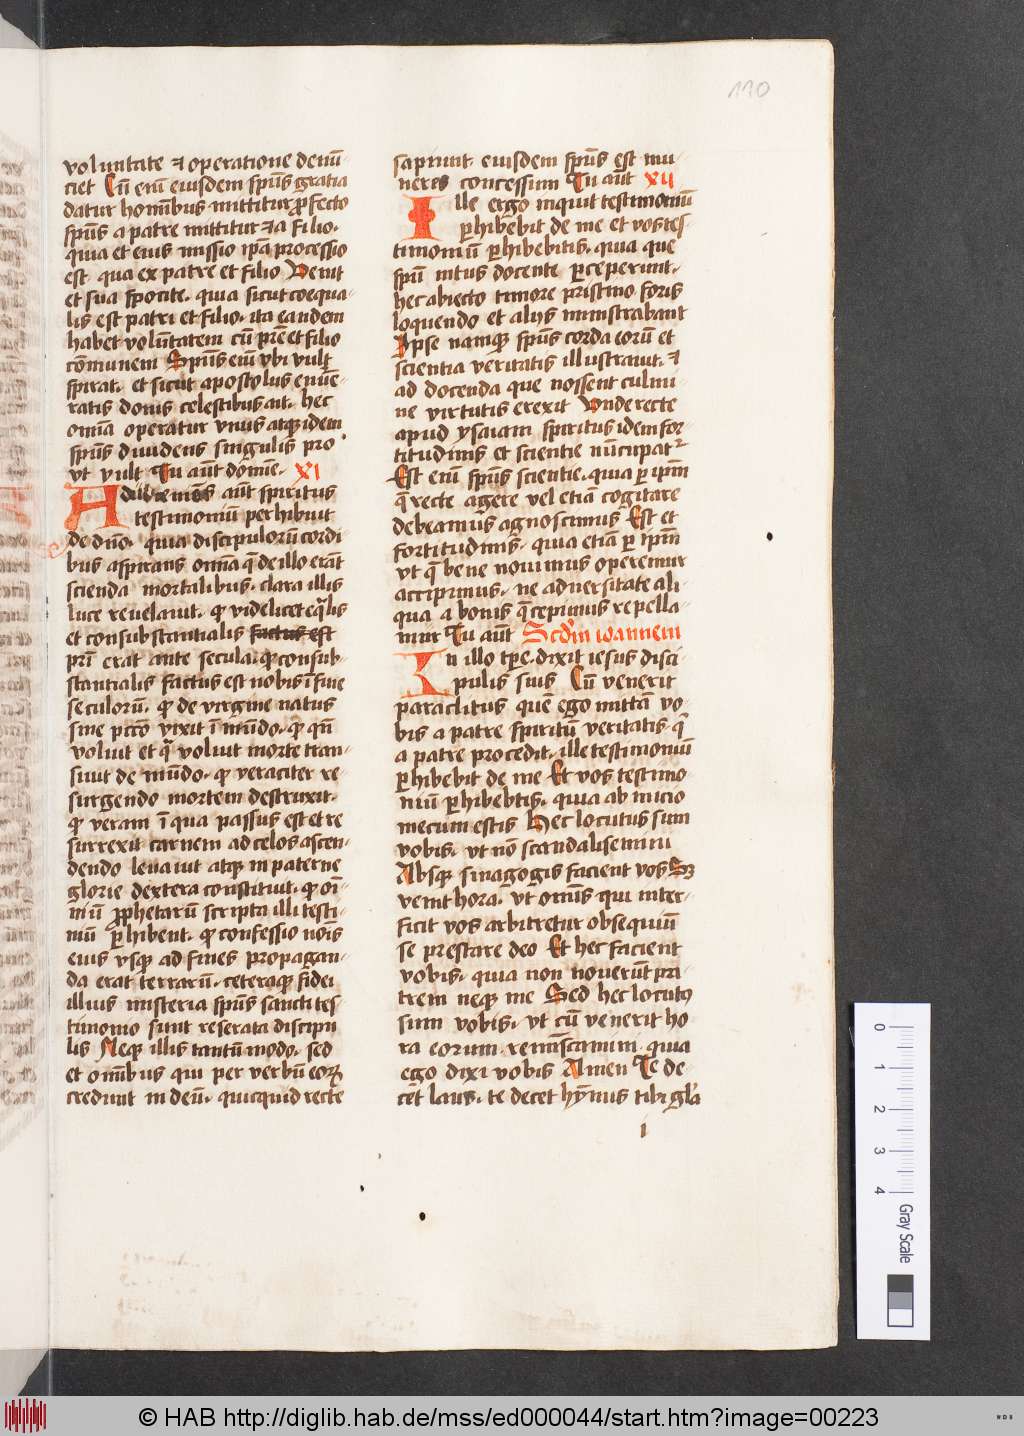 110
voluntate ⁊ operatione denū-
ciet Cū em̄ eiusdem spūs gratia
datur hominibus mittitur ꝓfecto
spūs a patre mittitur et a filio.
quia et eius missio ip̄a processio
est qua ex patre et filio Venit
et sua spōte. quia sicut coequa-
lis est patri et filio. ita eandem
habet volūtatem cū pr̄e et filio
cōmunem Spūs em̄ vbi vult
spirat. et sicut apostolus enūe-
ratis donis celestibus ait. hec
omnia operatur vnus atqꝫ idem
spūs diuidens singulis pro
vt vult Tu aūt domīe. XI
Adueniēs aūt spiritus
testimoniū perhibuit
de dn̄o. quia discipulorū cordi
bus aspirans omnia q̄ de illo erāt
scienda mortalibus. clara illis
luce reuelauit. ꝙ videlicet eq̄lis
et consubstantialis factus est
pr̄i erat ante secula. ꝙ consub-
stantialis factus est nobis ī fine
seculorū. ꝙ de virgine natus
sine pc̄co vixit ī mūdo. ꝙ qn̄
voluit et q̄ voluit morte tran-
siuit de mūdo. ꝙ veraciter re
surgendo mortem destruxit.
ꝙ veram ī qua passus est et re
surrexit carnem ad celos ascen-
dendo leuauit atqꝫ in paterne
glorie dextera constituit. ꝙ oī-
niū ꝓphetarū scripta illi testi-
niū ꝑhibent. ꝙ confessio noīs
eius vsqꝫ ad fines propagan-
da erat terrarū. ceteraqꝫ fidei
illius misteria spūs sancti tes
timonio sunt reserata discipu
lis Neqꝫ illis tantū modo. sed
et omībus qui per verbū eoꝝ
credunt in deū. quicquid recte
sapiunt eiusdem spūs est mu-
neres concessum Tu aūt XII
Ille ergo inquit testimoniū
ꝑhibebit de me et vos tes-
timoniū ꝑhibebitis. quia que
spū intus docente ꝑceperunt.
hec abiecto timore pristino foris
loquendo et alijs ministrabant
Ipse namqꝫ spūs corda eorū et
scientia veritatis illustrauit. ⁊
ad docenda que nossent culmi-
ne virtutis erexit Vnde recte
apud ysaiam spiritus idem for-
titudinis et scientie nūcupatr
Est em̄ spūs scientie. quia ꝑ ip̄m
q̄ recte agere vel etiā cogitare
debeamus agnoscimus Est et
fortitudinis. quia etiā ꝑ ip̄m
vt q̄ bene nouimus operemur
accipimus. ne aduersitate ali-
qua a bonis q̄ cepimus repella-
mur Tu aūt Scd̄m ioannem
In illo tp̄e. dixit iesus disci
pulis suis Cū venerit
paraclitus quē ego mittā vo-
bis a patre spiritū veritatis q̄
a patre procedit. ille testimoniū
ꝑhibebit de me Et vos testimo-
niū ꝑhibebtis. quia ab inicio
mecum estis Hec locutus sum
vobis. vt nō scandalisemini
Absqꝫ sinagogis facient vos Sꝫ
venit hora. vt omīs qui inter-
ficit vos arbitretur obsequiū
se prestare deo Et hec facient
vobis. quia non nouerūt pa-
trem neqꝫ me Sed hec locutꝰ
sum vobis. vt cū venerit ho
ra eorum reminiscamini. quia
ego dixi vobis Amen Te de-
cēt laus. te decet hymnus tibi gl̄a
i
0 1 2 3 4 Gray Scale
© HAB http://diglib.hab.de/mss/ed000044/start.htm?image=00223